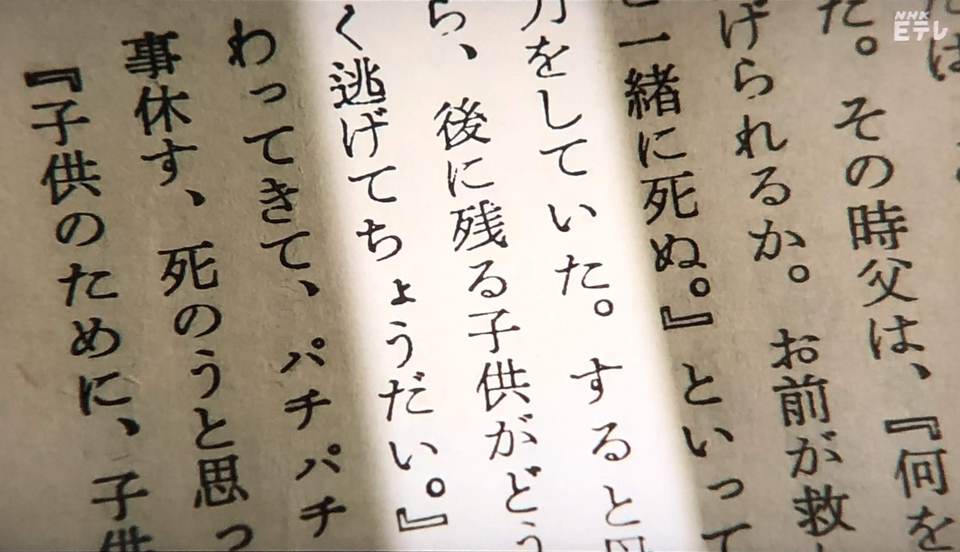 NHK
Eテレ
た。その時父は、『何を
げられるか。お前が救
一緒に死ぬ。』といって
力をしていた。すると母
ら、後に残る子供がどう
く逃げてちょうだい。』
わってきて、パチパチ
事休す、死のうと思っ
『子供のために、子供